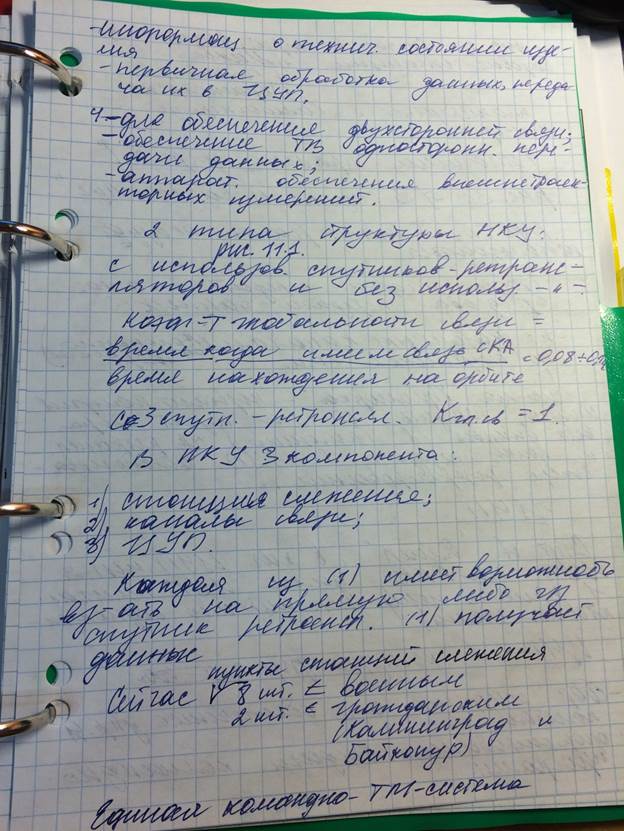 -информац. о технич. состоянии изде-
лия
-первичная обработка данных, переда
ча их в ЦУП.
4-для обеспечения двухсторонней связи;
-обеспечение ТВ односторонн. пере-
дачи данных;
-аппарат. обеспечения внешнетраек-
торных измерений.
2 типа структуры НКУ:
рис. 11.1.
с использов. спутников-ретранс-
ляторов и без использ. -"-
Коэф-т глобальности связи =
время когда имеем связь с КА = 0,08÷0,2
время нахождения на орбите
Со 3 спутн.-ретрансл. Кгл.св = 1.
В НКУ 3 компонента:
1) станция слежения;
2) каналы связи;
3) ЦУП.
Каждая из (1) имеет возможность
вз-ать на прямую либо ч/з
спутник ретрансл. (1) получает
данные
пункты станций слежения
Сейчас V 8 шт. ∈ военным
2 шт. ∈ гражданским
(Калининград и
Байконур)
Единая командно-ТМ-система